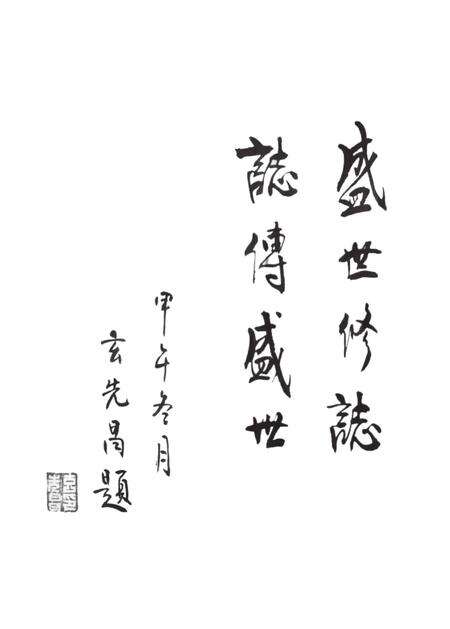 盛世修誌
誌傳盛世
甲午冬月
玄先昌題